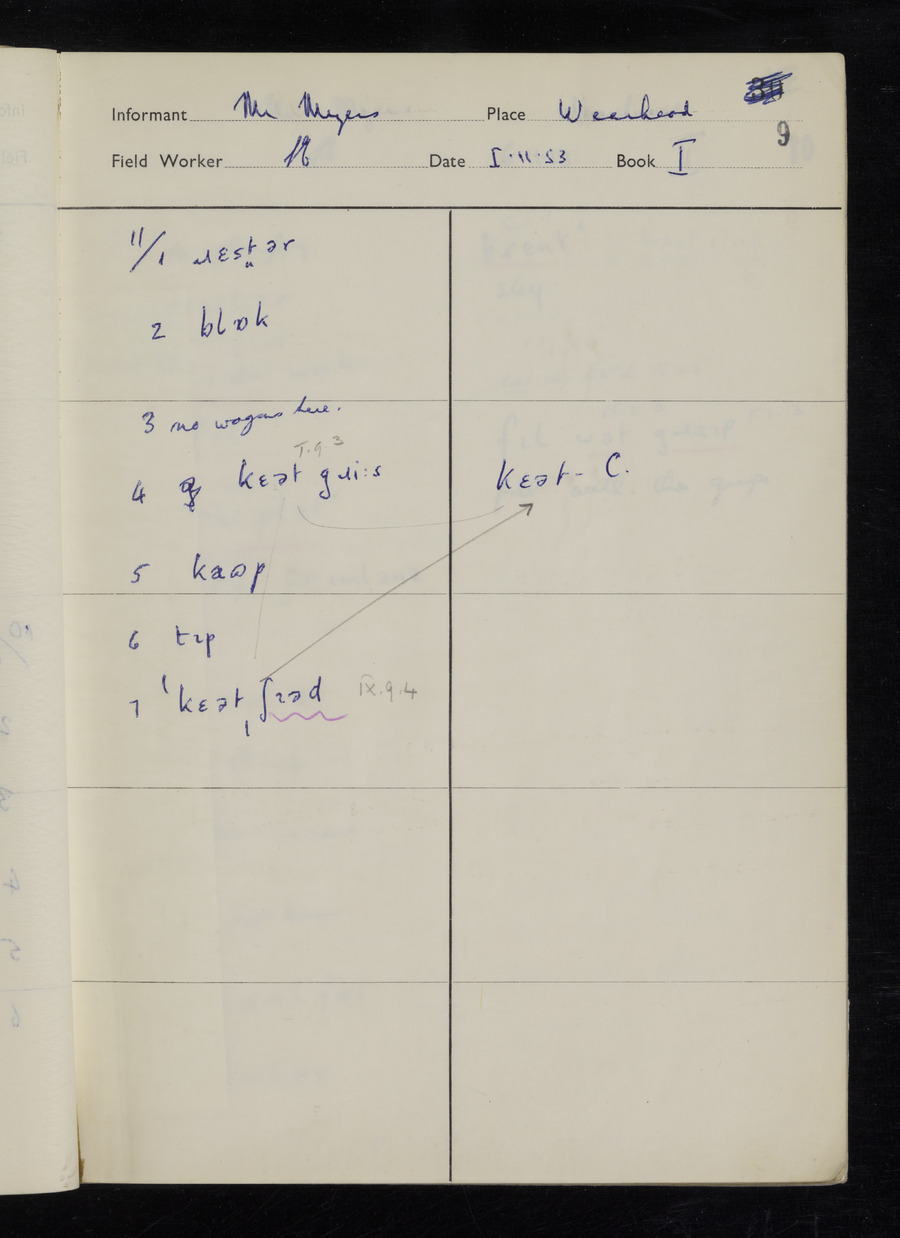 Informant Mr Meyers Place Wearhead
9
Field Worker Date 5.11.53 Book I
11/1 ɹɛstər
2 blɒk
3 no wagons here.
I.9.3
4 kɛət gɹi:s kɛət- C.
5 kaʊp
6 tɪp
7 ˈkɛətˌʃɪəd IX.9.4